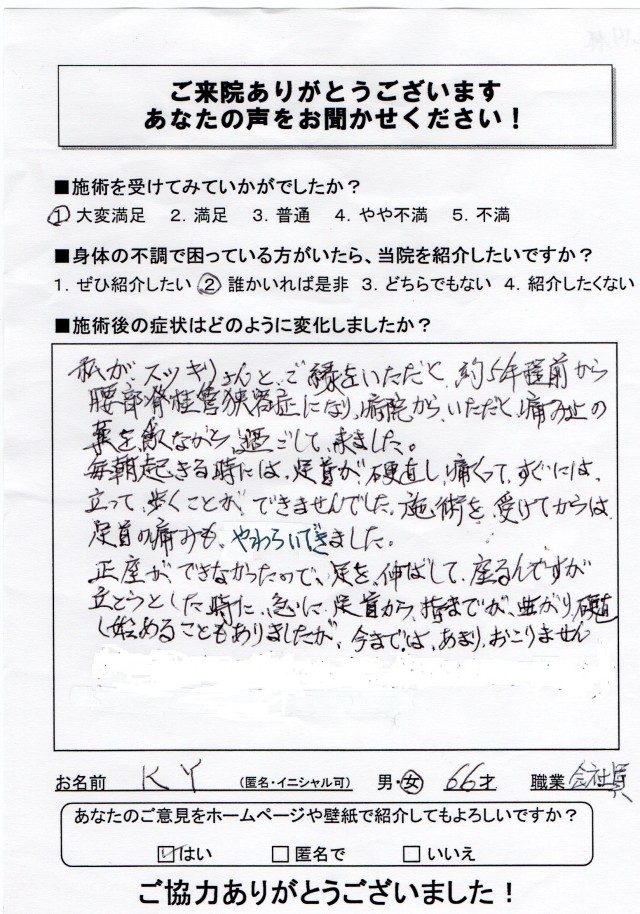 ご来院ありがとうございます
あなたの声をお聞かせください！
■施術を受けてみていかがでしたか？
① 大変満足 2. 満足 3. 普通 4. やや不満 5. 不満
■身体の不調で困っている方がいたら、当院を紹介したいですか？
1. ぜひ紹介したい ② 誰かいれば是非 3. どちらでもない 4. 紹介したくない
■施術後の症状はどのように変化しましたか？
私が、スッキリさんと、ご縁をいただき、約5年程前から
腰部脊柱管狭窄症になり、病院から、いただく、痛み止の
薬を飲ながら、過ごして、来ました。
毎朝起きる時には、足首が硬直し、痛くって、すぐには、
立って、歩くことが、できませんでした。施術を、受けてからは
足首の痛みも、やわらいできました。
正座が、できなかったので、足を、伸ばして、座るんですが
立とうとした時に、急に、足首から、指までが、曲がり、硬直
し始めることもありましたが、今までは、あまり、おこりません
お名前 K Y （匿名・イニシャル可） 男・女 66才 職業 会社員
あなたのご意見をホームページや壁紙で紹介してもよろしいですか？
☑はい □匿名で □いいえ
ご協力ありがとうございました！